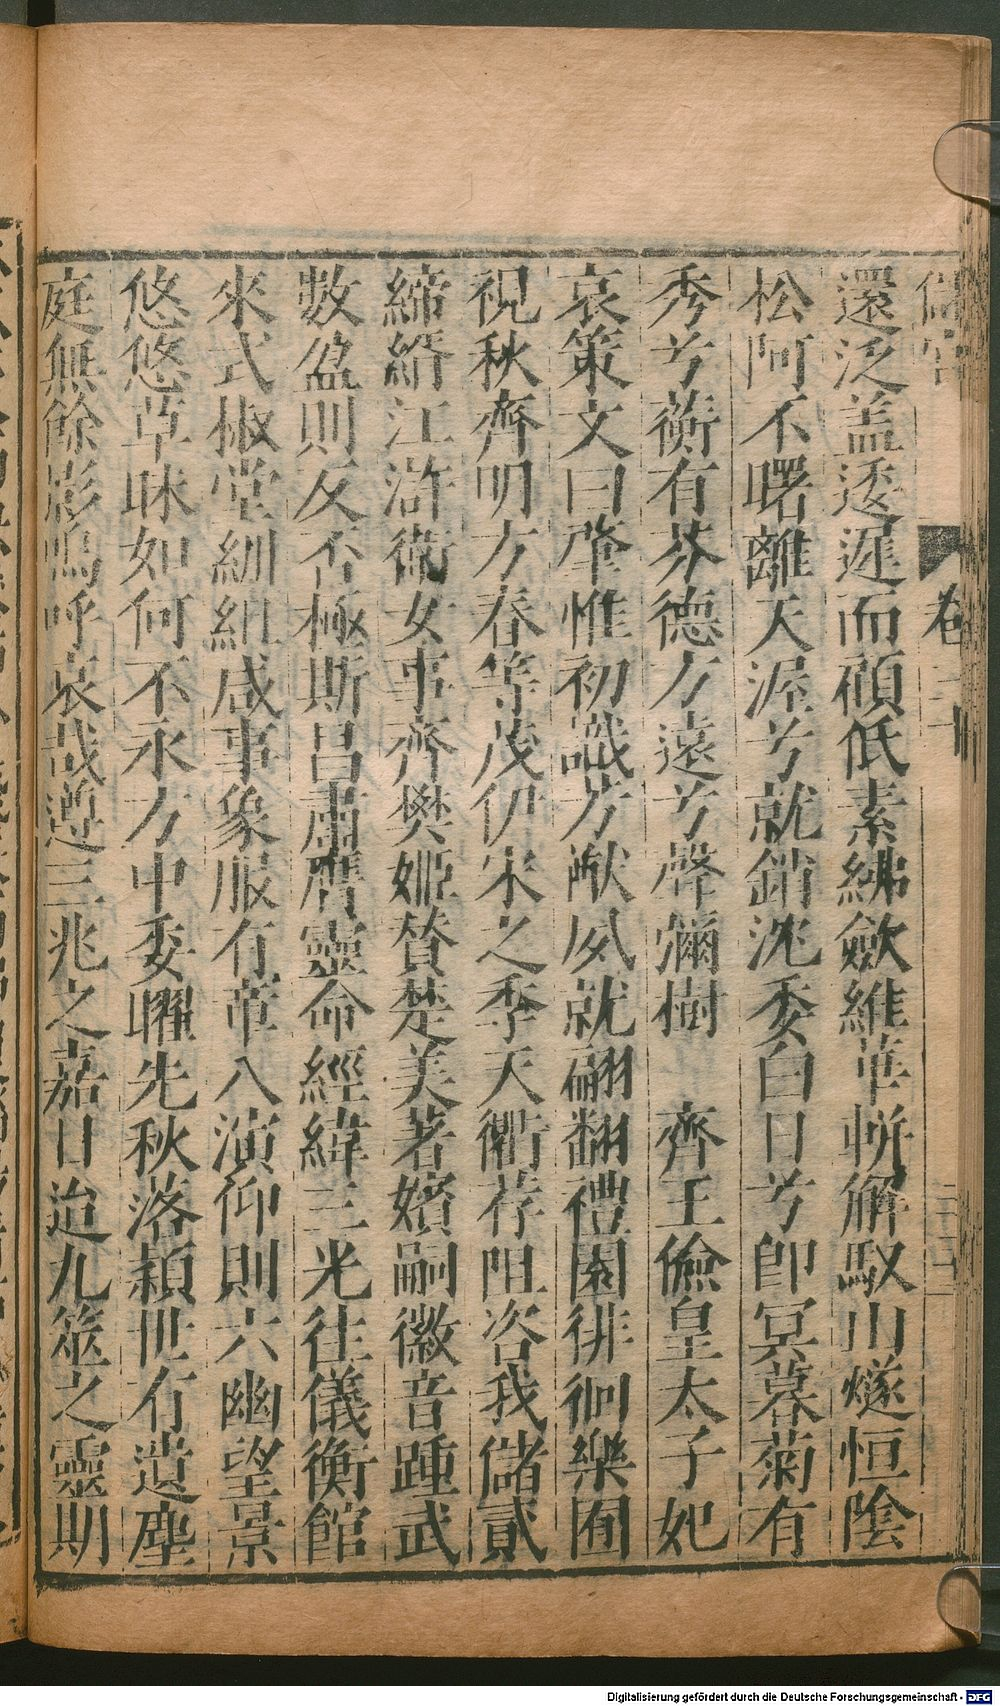 還泛蓋逶遲而顧低素紼斂維華軿解馭山燧恒陰
松阿不曙離天渥兮就銷沈委白日兮卽冥暮菊有
秀兮蘅有芬德方遠兮聲彌樹　齊王儉皇太子妃
哀策文曰肇惟初識芳猷夙就翩翻禮園徘徊樂囿
視秋齊明方春等茂伊宋之季天衢荐阻咨我儲貳
締緍江滸衛女事齊樊姬贊楚美著嬪嗣徽音踵武
數盈則反否極斯昌肅膺靈命經緯三光往儀衡館
來式椒堂紃組咸事象服有章八演仰則六幽望景
悠悠草昧如何不永方中委曜先秋落穎世有遺塵
庭無餘影嗚呼哀哉遵三兆之嘉日治九筮之靈期
儲宮
卷二十
Digitalisierung gefördert durch die Deutsche Forschungsgemeinschaft - DFG